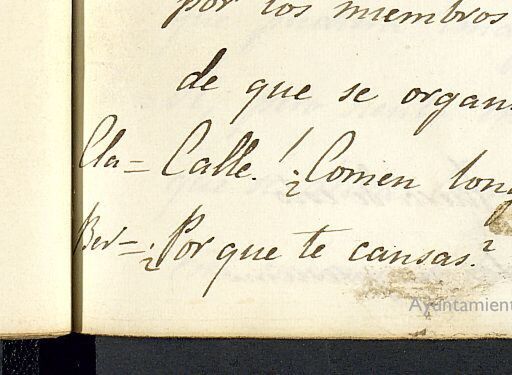 por los miembros
de que se organ
Cla= Calle! ¿Comen long
Ber= ¿Por que te cansas?
Ayuntamient